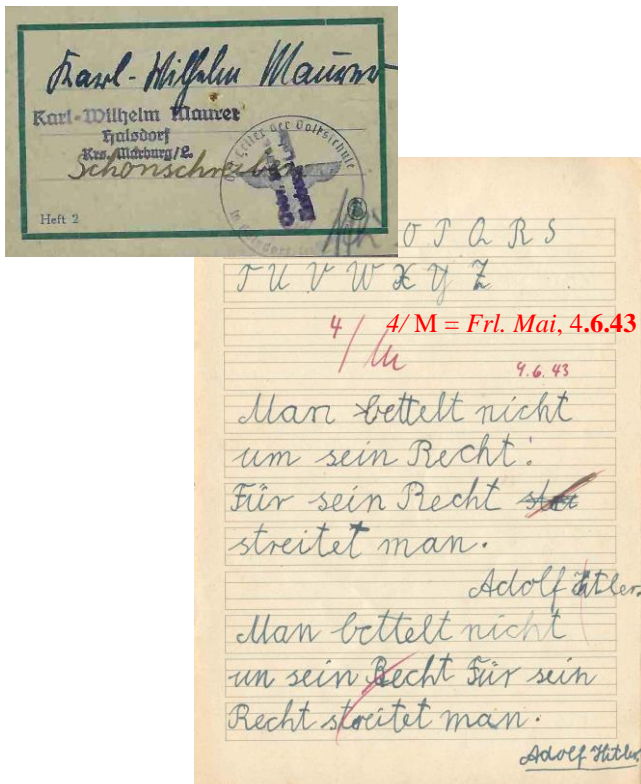 Karl-Wilhelm Maurer
Karl-Wilhelm Maurer
Halsdorf
Krs. Marburg/L.
Schönschreiben
Leiter der Volksschule
Heft 2
O P Q R S
T U V W X Y Z
4/M
4/ M = Frl. Mai, 4.6.43
4.6.43
Man bettelt nicht
um sein Recht!
Für sein Recht
streitet man.
Adolf Hitler.
Man bettelt nicht
un sein Recht Für sein
Recht streitet man.
Adolf Hitler